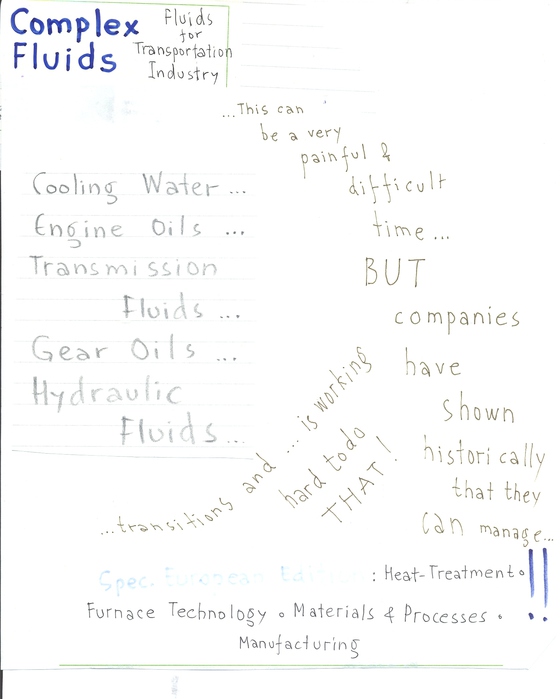 Complex
Fluids
Fluids
for
Transportation
Industry
Cooling Water ...
Engine Oils ...
Transmission
Fluids ...
Gear Oils ...
Hydraulic
Fluids ...
...This can
be a very
painful &
difficult
time ...
BUT
companies
have
shown
historically
that they
can manage...
...transitions and ... is working
hard to do
THAT!
Spec. European Edition : Heat-Treatment • !!
Furnace Technology • Materials & Processes •
Manufacturing